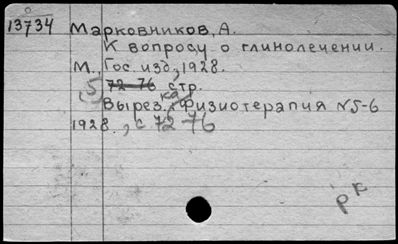 13734 Марковников, А.
К вопросу о глинолечении.
М., Гос. изд., 1928.
5 72-76 стр.
Вырез. ка, Физиотерапия №5-6
1928., с 72 76
рк